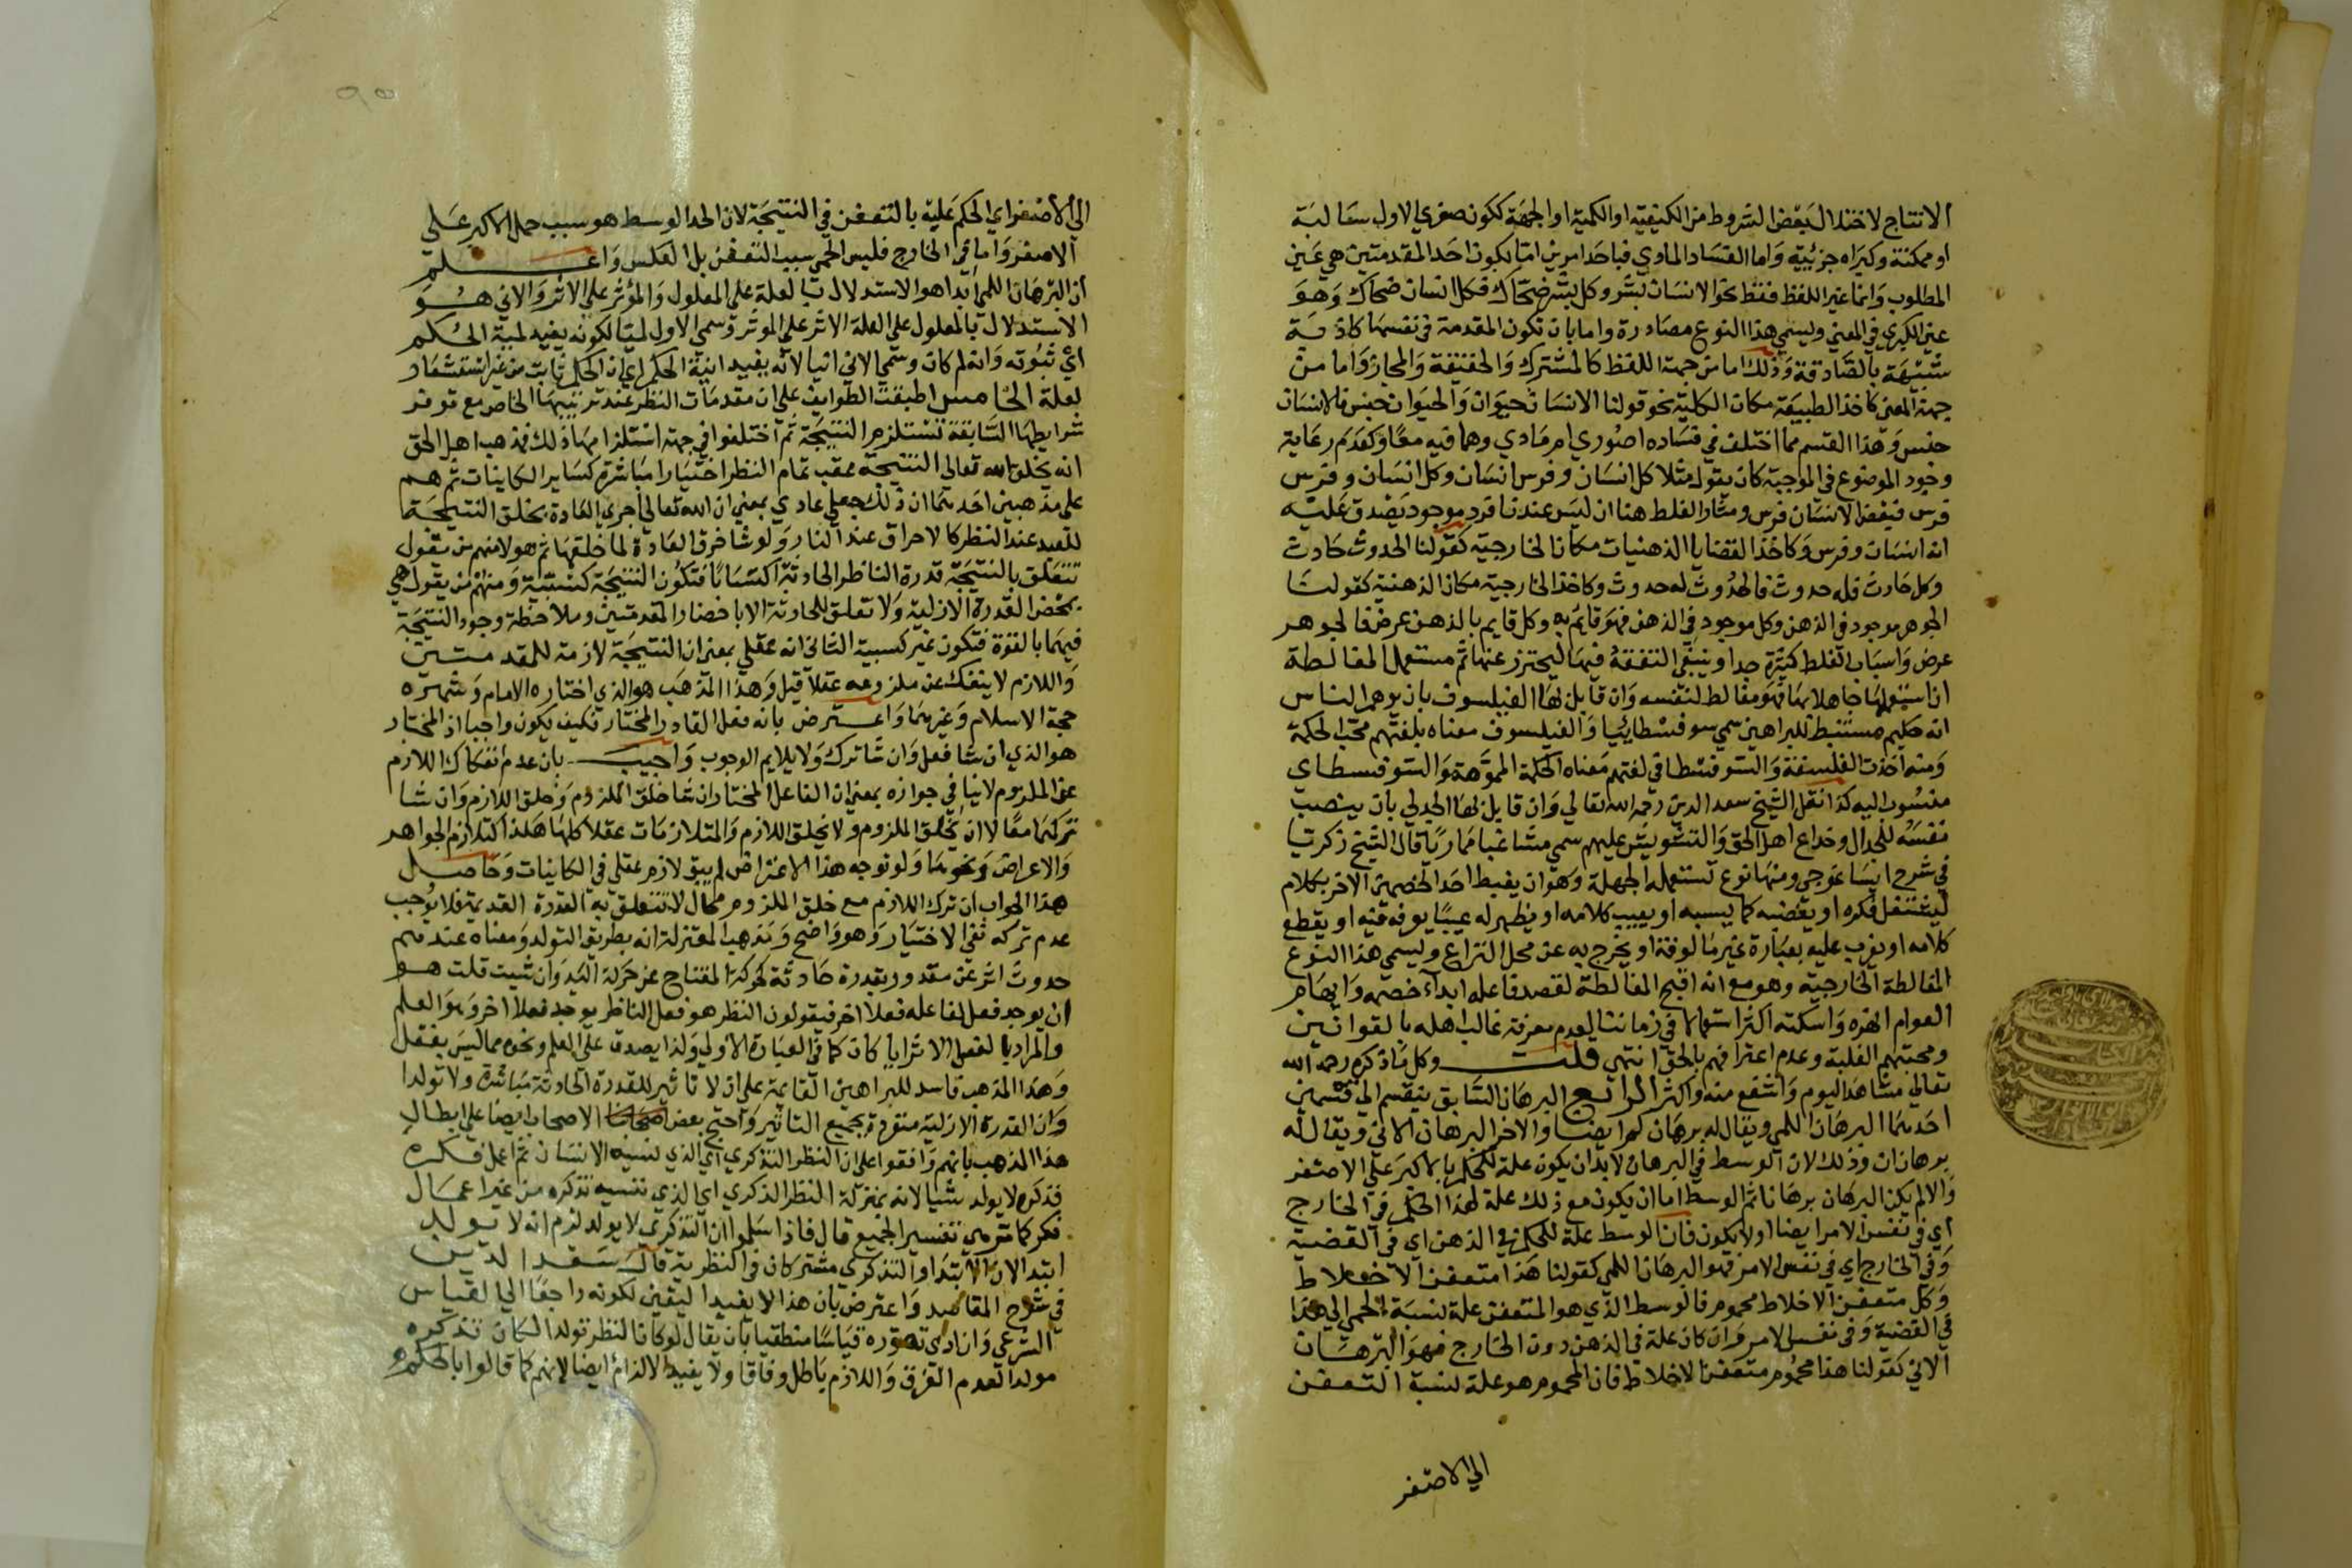 الانتاج لاختلال بعض الشروط من الكيفية او الكمية او الجهة ككون صغري الاول سالبة
او ممكنة وكبراه جزئية واما الفساد المادي فباحد امرين اما بكون احد المقدمتين هي عين
المطلوب وانما غير اللفظ فقط نحو الانسان بشر وكل بشر ضحاك فكل انسان ضحاك وهو
عين الكبري في المعني ويسمي هذا النوع مصادرة واما بان تكون المقدمة في نفسها كاذبة
شبيهة بالصادقة وذلك اما من جهة اللفظ كالمشترك والحقيقة والمجاز واما من
جهة المعني كاخذ الطبيعة مكان الكلية نحو قولنا الانسان حيوان والحيوان جنس فالانسان
جنس وهذا القسم مما اختلف في فساده اصوري ام مادي وهما فيه معا وكعدم رعاية
وجود الموضوع في الموجبة كان يقول مثلا كل انسان وفرس انسان وكل انسان وفرس
فرس فبعض الانسان فرس ومثار الغلط هنا ان ليس عندنا فرد موجود يصدق عليه
انه انسان وفرس وكاخذ القضايا الذهنيات مكان الخارجية كقولنا الحدوث حادث
وكل حادث فله حدوث فالحدوث له حدوث وكاخذ الخارجية مكان الذهنية كقولنا
الجوهر موجود في الذهن وكل موجود في الذهن فهو قايم به وكل قايم بالذهن عرض فالجوهر
عرض واسباب الغلط كثيرة جدا وينبغي التفقه فيها ليحترز عنها ثم مستعمل المغالطة
ان استعملها جاهلا بها فهو مغالط لنفسه وان قابل بها الفيلسوف بان يوهم الناس
انه حكيم مستنبط للبراهين سمي سوفسطائيا والفيلسوف معناه بلغتهم محب الحكمة
ومنه اخذت الفلسفة والسوفسطا في لغتهم معناه الحكمة المموهة والسوفسطاي
منسوب اليه كذا نقل الشيخ سعد الدين رحمه الله تعالي وان قابل بها الجدلي بان ينصب
نفسه للجدال وخداع اهل الحق والتشويش عليهم سمي مشاغبا مماريا قال الشيخ زكريا
في شرح ايساغوجي ومنها نوع تستعمله الجهلة وهو ان يغيظ احد الخصمين الاخر بكلام
ليشتغل فكره او بغضبه كما يسبه او يعيب كلامه او يظهر له عيبا يعرفه فيه او يقطع
كلامه او يغرب عليه بعبارة غير مالوفة او يخرج به عن محل النزاع ويسمي هذا النوع
المغالطة الخارجية وهو مع انه اقبح المغالطة لقصد فاعله ايذاء خصمه وايهام
العوام انه قهره واسكته اكثر استعمالا في زماننا لعدم معرفة غالب اهله بالقوانين
ومحبتهم الغلبة وعدم اعترافهم بالحق انتهي قلت وكل ما ذكره رحمه الله
تعالي مشاهد اليوم واشنع منه واكثر الرابع البرهان السابق ينقسم الي قسمين
احدهما البرهان اللمي ويقال له برهان لم ايضا والاخر البرهان الاني ويقال له
برهان ان وذلك لان الوسط في البرهان لا بد ان يكون علة للحكم بالاكبر علي الاصغر
والا لم يكن البرهان برهانا ثم الوسط اما ان يكون مع ذلك علة لهذا الحكم في الخارج
اي في نفس الامر ايضا او لا يكون فان الوسط علة للحكم في الذهن اي في القضية
وفي الخارج اي في نفس الامر فهو البرهان اللمي كقولنا هذا متعفن الاخلاط
وكل متعفن الاخلاط محموم فالوسط الذي هو المتعفن علة لنسبة الحمي الي هذا
في القضية وفي نفس الامر وان كان علة في الذهن دون الخارج فهو البرهان
الاني كقولنا هذا محموم متعفن الاخلاط فان المحموم هو علة لنسبة التعفن
الي الاصغر
الي الاصغر اي الحكم عليه بالتعفن في النتيجة لان الحد الوسط هو سبب حمل الاكبر علي
الاصغر واما في الخارج فليس الحمي سبب التعفن بل العكس واعلم
ان البرهان اللمي ابدا هو الاستدلال بالعلة علي المعلول والمؤثر علي الاثر والاني هو
الاستدلال بالمعلول علي العلة الاثر علي الموثر وسمي الاول لميا لكونه يفيد لمية الحكم
اي ثبوته وانه لم كان وسمي الاني انيا لانه يفيد انية الحكم اي ان الحكم ثابت من غير استشعار
لعلة الخامس اطبقت الطوايف علي ان مقدمات النظر عند ترتيبها الخاص مع توفر
شرايطها السابقة تستلزم النتيجة ثم اختلفوا في جهة استلزامها ذلك فمذهب اهل الحق
انه يخلق الله تعالي النتيجة عقب تمام النظر اختيارا مباشرة كساير الكاينات ثم هم
علي مذهبين احدهما ان ذلك جعلي عادي بمعني ان الله تعالي اجري العادة بخلق النتيجة
للعبد عند النظر كالاحراق عند النار ولو شا خرق العادة لما خلقها ثم هولا منهم من يقول
تتعلق بالنتيجة قدرة الناظر الحادثة اكتسابا فتكون النتيجة كسبية ومنهم من يقول هي
بمحض القدرة الازلية ولا تعلق للحادثة الا باحضار المقدمتين وملاحظة وجود النتيجة
فيهما بالقوة فتكون غير كسبية الثاني انه عقلي بمعني ان النتيجة لازمة للمقدمتين
واللازم لا ينفك عن ملزومه عقلا قيل وهذا المذهب هو الذي اختاره الامام وشهره
حجة الاسلام وغيرهما واعترض بانه فعل القادر المختار فكيف يكون واجبا اذ المختار
هو الذي ان شا فعل وان شا ترك ولا يلايم الوجوب واجيب بان عدم انفكاك اللازم
عن الملزوم لا ينافي جوازه بمعني ان الفاعل المختار ان شا خلق الملزوم وخلق اللازم وان شا
تركهما معا لا ان يخلق الملزوم ولا يخلق اللازم والمتلازمات عقلا كلها هكذا كتلازم الجواهر
والاعراض ونحوهما ولو توجه هذا الاعتراض لم يبق لازم عقلي في الكاينات وحاصل
هذا الجواب ان ترك اللازم مع خلق الملزوم محال لا تتعلق به القدرة القديمة فلا يوجب
عدم تركه نفي الاختيار وهو واضح ومذهب المعتزلة انه بطريق التولد ومعناه عندهم
حدوث اثر عن مقدور بقدرة حادثة كحركة المفتاح عن حركة اليد وان شيت قلت هو
ان يوجد فعل لفاعله فعلا اخر فيقولون النظر هو فعل الناظر يوجد فعلا اخر وهو العلم
والمراد بالفعل الاثر ايا كان كما في العبارة الاولي ولذا يصدق علي العلم ونحوه مما ليس بفعل
وهذا المذهب فاسد للبراهين القايمة علي ان لا تاثير للقدرة الحادثة مباشرة ولا تولدا
وان القدرة الازلية منفردة بجميع التاثير واحتج بعض الاصحاب ايضا علي ابطال
هذا المذهب بانهم وافقوا علي ان النظر التذكري اي الذي نسيه الانسان ثم اعمل فكره
فذكره لا يولد شيا لانه بمنزلة النظر الذكري اي الذي نسيه تذكره من غير اعمال
فكر كما مر في تفسير الجميع قال فاذا سلموا ان التذكري لا يولد لزم انه لا يولد
ابتدا لان الابتدا والتذكري مشتركان في النظرية قال سعد الدين
في شرح المقاصد واعترض بان هذا لا يفيد اليقين لكونه راجعا الي القياس
الشرعي وان ادي تصوره قياسا منطقيا بان يقال لو كان النظر تولد لكان تذكره
مولدا لعدم الفرق واللازم باطل وفاقا ولا يفيد الالزام ايضا لانهم كما قالوا بالحكم